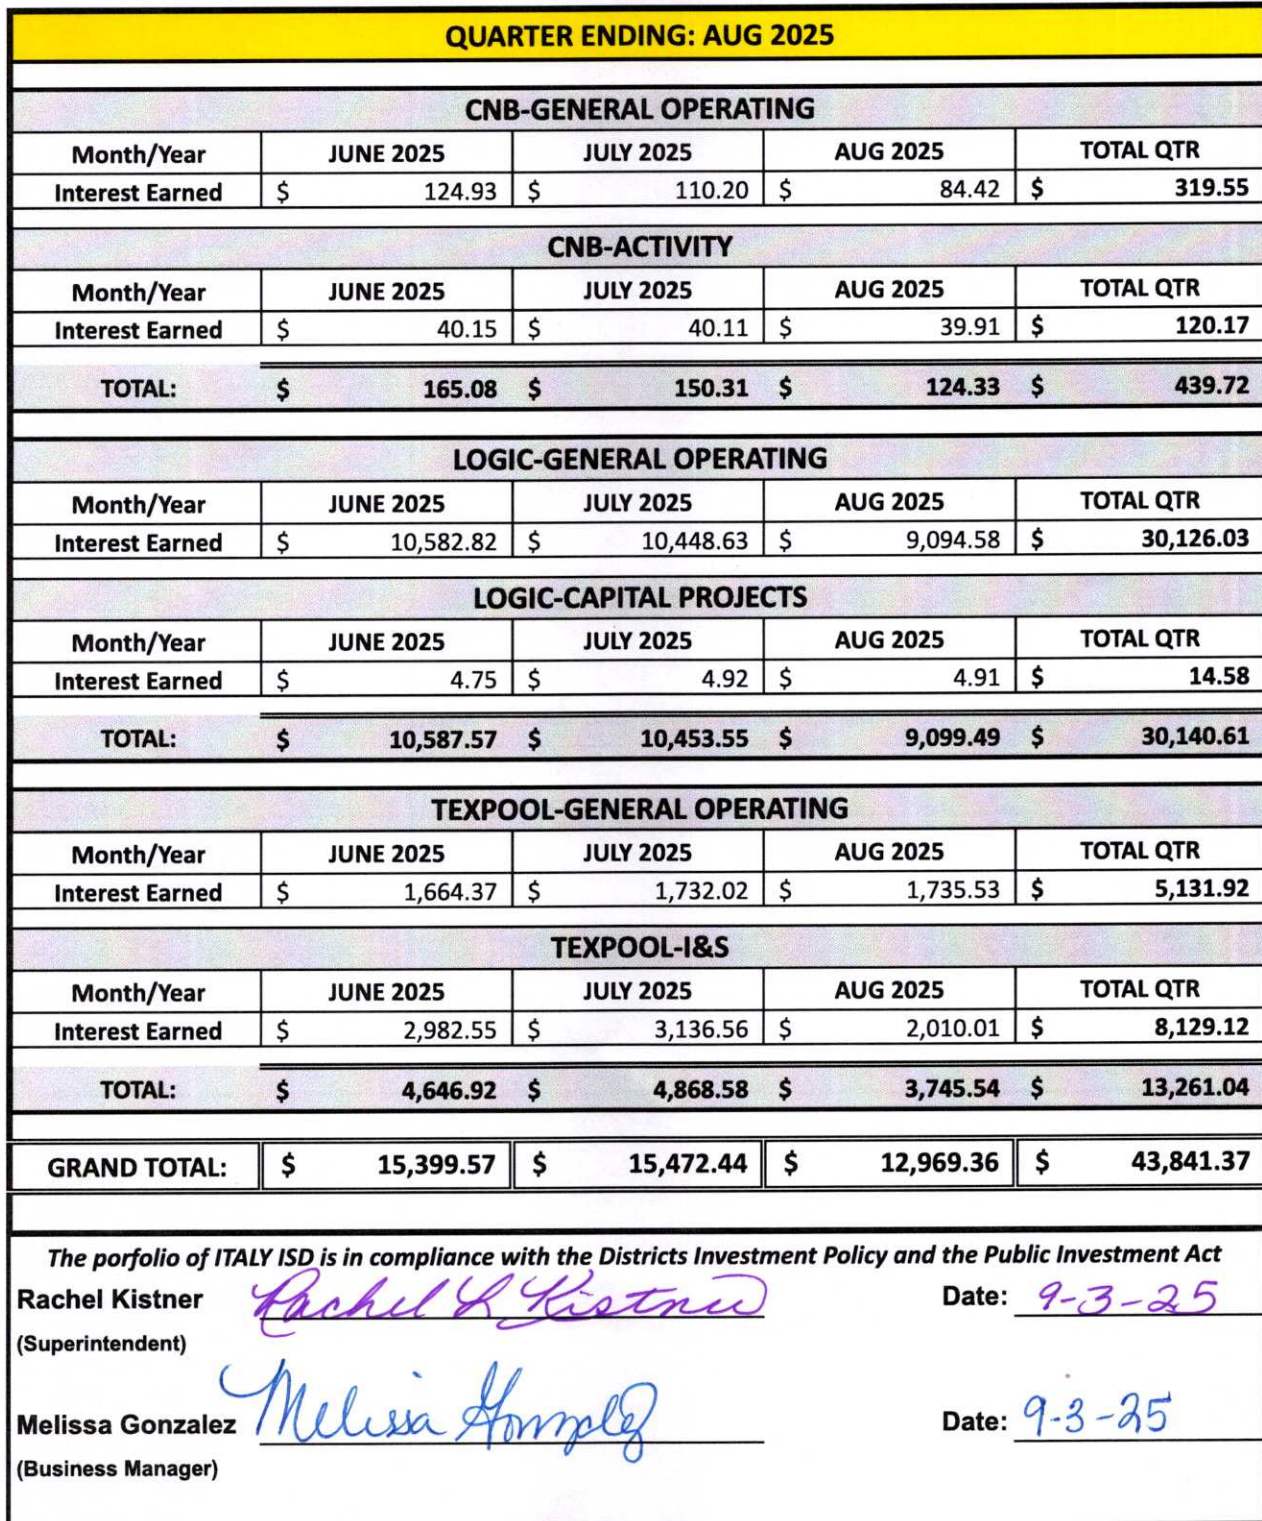 QUARTER ENDING: AUG 2025
CNB-GENERAL OPERATING
Month/Year JUNE 2025 JULY 2025 AUG 2025 TOTAL QTR
Interest Earned $ 124.93 $ 110.20 $ 84.42 $ 319.55
CNB-ACTIVITY
Month/Year JUNE 2025 JULY 2025 AUG 2025 TOTAL QTR
Interest Earned $ 40.15 $ 40.11 $ 39.91 $ 120.17
TOTAL: $ 165.08 $ 150.31 $ 124.33 $ 439.72
LOGIC-GENERAL OPERATING
Month/Year JUNE 2025 JULY 2025 AUG 2025 TOTAL QTR
Interest Earned $ 10,582.82 $ 10,448.63 $ 9,094.58 $ 30,126.03
LOGIC-CAPITAL PROJECTS
Month/Year JUNE 2025 JULY 2025 AUG 2025 TOTAL QTR
Interest Earned $ 4.75 $ 4.92 $ 4.91 $ 14.58
TOTAL: $ 10,587.57 $ 10,453.55 $ 9,099.49 $ 30,140.61
TEXPOOL-GENERAL OPERATING
Month/Year JUNE 2025 JULY 2025 AUG 2025 TOTAL QTR
Interest Earned $ 1,664.37 $ 1,732.02 $ 1,735.53 $ 5,131.92
TEXPOOL-I&S
Month/Year JUNE 2025 JULY 2025 AUG 2025 TOTAL QTR
Interest Earned $ 2,982.55 $ 3,136.56 $ 2,010.01 $ 8,129.12
TOTAL: $ 4,646.92 $ 4,868.58 $ 3,745.54 $ 13,261.04
GRAND TOTAL: $ 15,399.57 $ 15,472.44 $ 12,969.36 $ 43,841.37
The porfolio of ITALY ISD is in compliance with the Districts Investment Policy and the Public Investment Act
Rachel Kistner Rachel L Kistner Date: 9-3-25
(Superintendent)
Melissa Gonzalez Melissa Gonzalez Date: 9-3-25
(Business Manager)